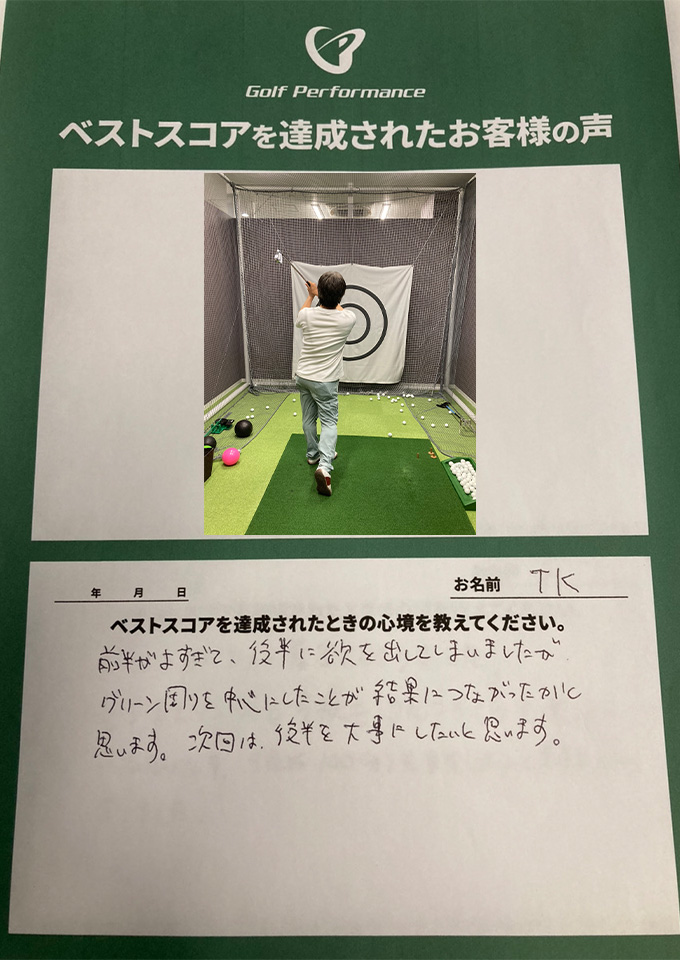 Golf Performance
ベストスコアを達成されたお客様の声
年 月 日
お名前 TK
ベストスコアを達成されたときの心境を教えてください。
前半がよすぎて、後半に欲を出してしまいましたが
グリーン周りを中心にしたことが結果につながったかと
思います。次回は、後半を大事にしたいと思います。